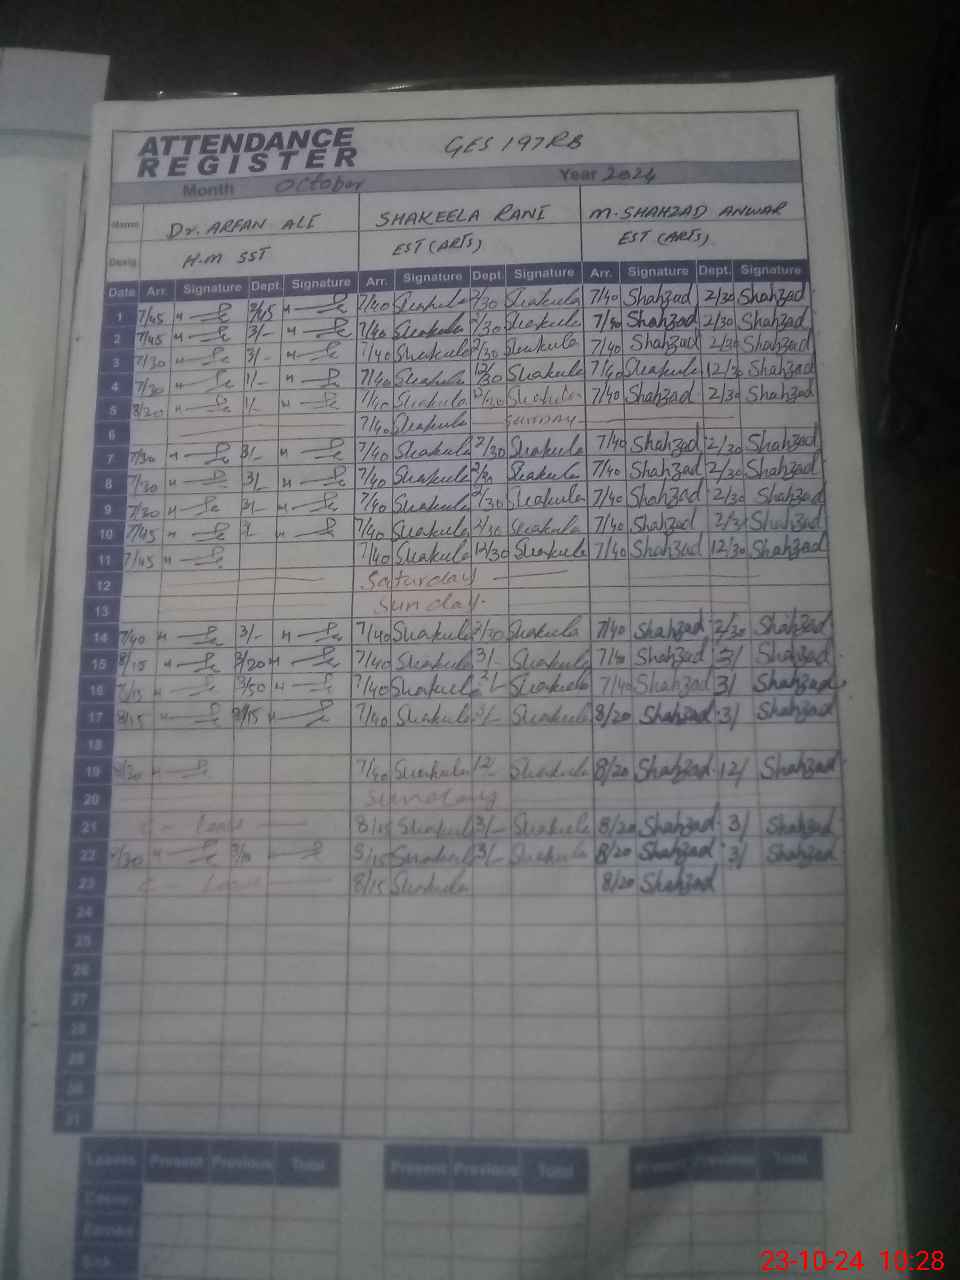 ATTENDANCE
REGISTER
GES 197RB
Month October Year 2024
Name Dr. ARFAN ALI SHAKEELA RANI M. SHAHZAD ANWAR
Desig H.M SST EST (ARTS) EST (ARTS)
Date Arr. Signature Dept. Signature Arr. Signature Dept. Signature Arr. Signature Dept. Signature
1 7/45 7/40 Shakeela 2/30 Shakeela 7/40 Shahzad 2/30 Shahzad
2 7/45 3/- 7/40 Shakeela 2/30 Shakeela 7/40 Shahzad 2/30 Shahzad
3 7/30 3/- 7/40 Shakeela 2/30 Shakeela 7/40 Shahzad 2/30 Shahzad
4 7/30 1/- 7/40 Shakeela 12/30 Shakeela 7/40 Shakeela 12/30 Shahzad
5 8/20 1/- 7/40 Shakeela Shakeela 7/40 Shahzad 2/30 Shahzad
6 7/40 Shakeela Sunday
7 7/30 3/- 7/40 Shakeela 2/30 Shakeela 7/40 Shahzad 2/30 Shahzad
8 7/30 3/- 7/40 Shakeela 2/30 Shakeela 7/40 Shahzad 2/30 Shahzad
9 7/30 3/- 7/40 Shakeela 2/30 Shakeela 7/40 Shahzad 2/30 Shahzad
10 7/45 7/40 Shakeela 2/30 Shakeela 7/40 Shahzad 2/30 Shahzad
11 7/45 7/40 Shakeela 12/30 Shakeela 7/40 Shahzad 12/30 Shahzad
12 Saturday
13 Sunday
14 7/40 3/- 7/40 Shakeela 2/30 Shakeela 7/40 Shahzad 2/30 Shahzad
15 8/15 3/20 7/40 Shakeela 3/- Shakeela 7/40 Shahzad 3/ Shahzad
16 8/15 3/50 7/40 Shakeela Shakeela 7/40 Shahzad 3/ Shahzad
17 8/15 7/40 Shakeela 3/- Shakeela 8/20 Shahzad 3/ Shahzad
18
19 7/40 Shakeela 12/ Shakeela 8/20 Shahzad 12/ Shahzad
20 Sunday
21 Leave 8/15 Shakeela 3/- Shakeela 8/20 Shahzad 3/ Shahzad
22 8/15 Shakeela 3/- Shakeela 8/20 Shahzad 3/ Shahzad
23 Leave 8/15 Shakeela 8/20 Shahzad
24
25
26
27
28
29
30
31
Leaves Present Previous Total Present Previous Total Present Previous Total
Casual
Earned
Sick
23-10-24 10:28